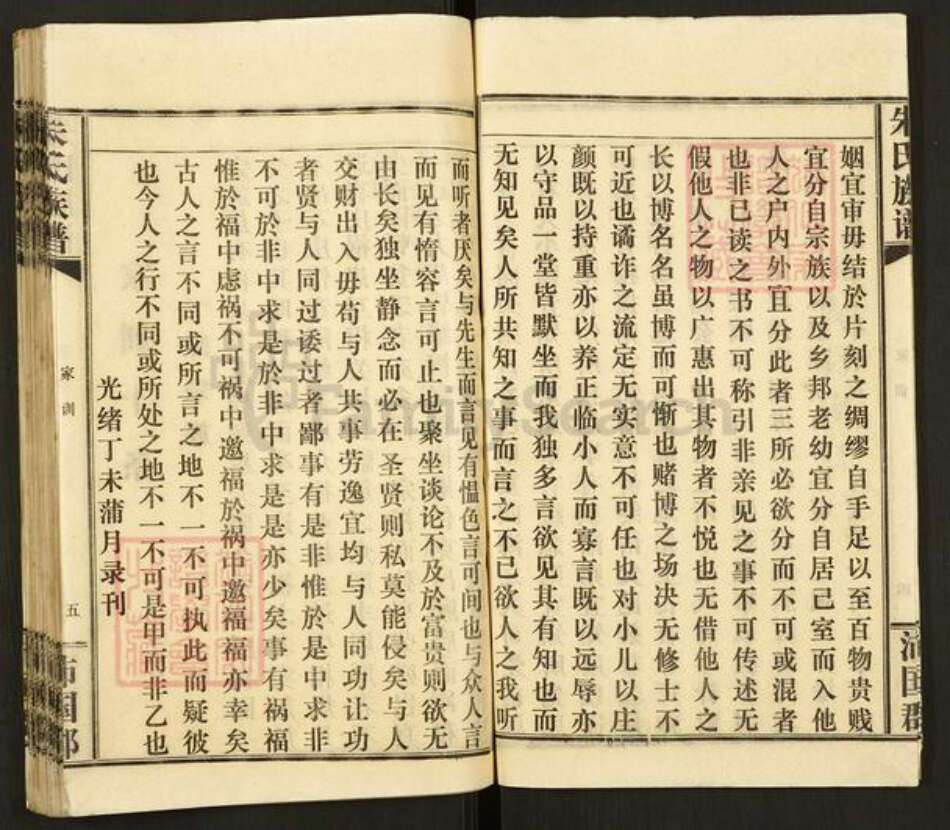 朱氏族谱
姻宜审毋结於片刻之绸缪自手足以至百物贵贱
宜分自宗族以及乡邦老幼宜分自居己室而入他
人之户内外宜分此者三所必欲分而不可或混者
也非已读之书不可称引非亲见之事不可传述无
假他人之物以广惠出其物者不悦也无借他人之
长以博名名虽博而可惭也赌博之场决无修士不
可近也谲诈之流定无实意不可任也对小儿以庄
颜既以持重亦以养正临小人而寡言既以远辱亦
以守品一堂皆默坐而我独多言欲见其有知也而
无知见矣人所共知之事而言之不已欲人之我听
而听者厌矣与先生而言见有愠色言可间也与众人言
而见有惰容言可止也聚坐谈论不及於富贵则欲无
由长矣独坐静念而必在圣贤则私莫能侵矣与人
交财出入毋苟与人共事劳逸宜均与人同功让功
者贤与人同过诿过者鄙事有是非惟於是中求非
不可於非中求是於非中求是是亦少矣事有祸福
惟於福中虑祸不可祸中邀福於祸中邀福福亦幸矣
古人之言不同或所言之地不一不可执此而疑彼
也今人之行不同或所处之地不一不可是甲而非乙也
光绪丁未蒲月录刊
朱氏族谱
家训
五
沛国郡
沛国郡